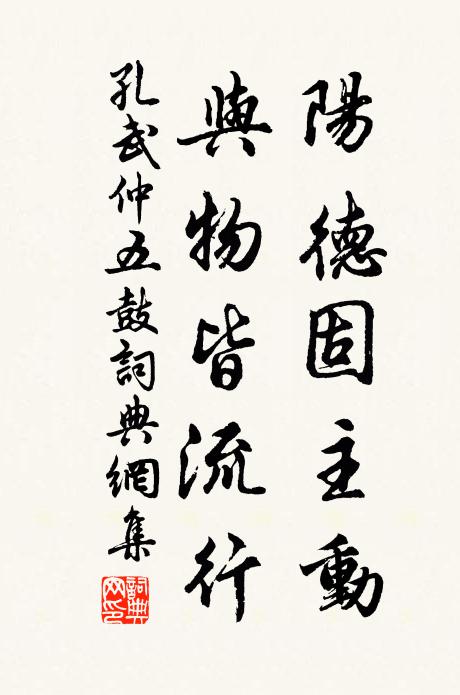 陽德固主動
與物皆流行
孔武仲五鼓詞典網集
詞典網印